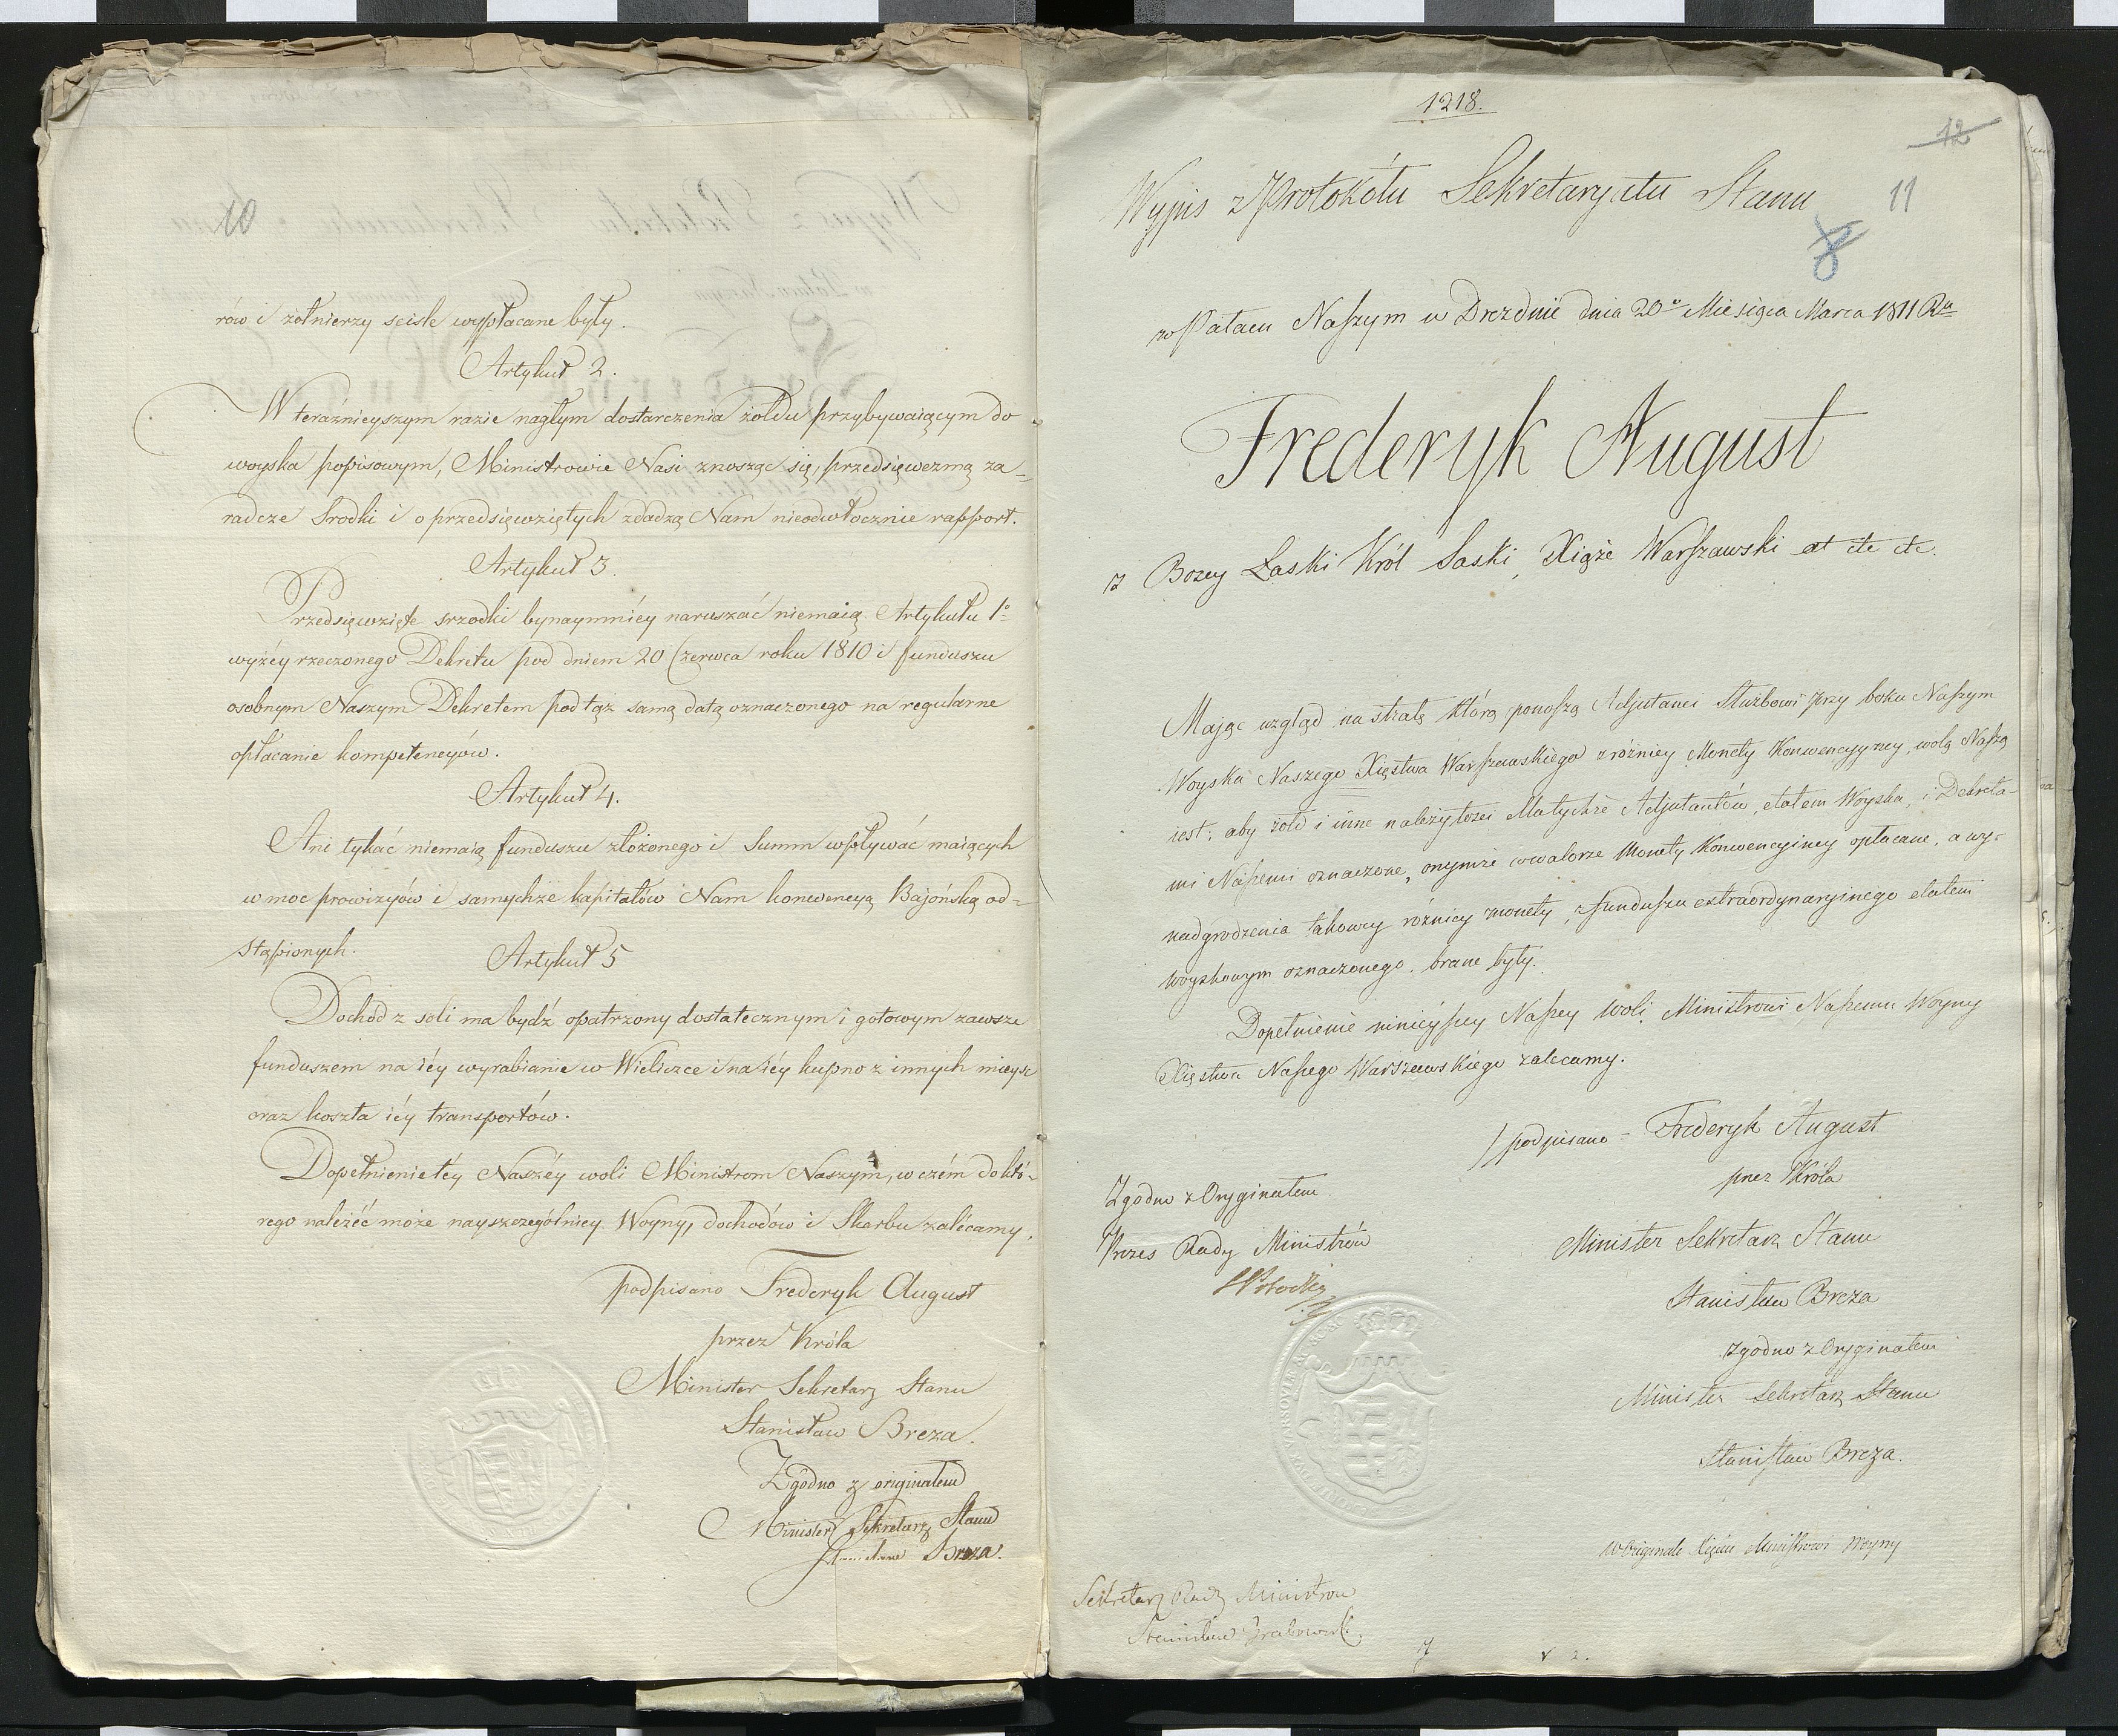 10
rów i żołnierzy sciśle wypłacane były.
Artykuł 2.
W teraznieyszym razie nagłym dostarczenia żołdu przybywaiącym do
woyska popisowym, Ministrowie Nasi znosząc się, przedsięwezmą za=
radcze srodki i o przedsięwziętych zdadzą Nam nieodwłocznie rapport.
Artykuł 3.
Przedsięwzięte srzodki bynaymniéy naruszać niemaią Artykułu 1o
wyżéy rzeczonego Dekretu pod dniem 20 Czerwca roku 1810 i funduszu
osobnym Naszym Dekretem pod tąż samą datą oznaczonego na regularne
opłacanie kompetencyów.
Artykuł 4.
Ani tykać niemaią funduszu złożonego i Summ wpływać maiących
w moc prowizyów i samychże kapitałów Nam konwencyą Bajońską od=
stąpionych.
Artykuł 5
Dochód z soli ma bydź opatrzony dostatecznym i gotowym zawsze
funduszem na iéy wyrabianie w Wieliczce i na iéy kupno z innych mieysc
oraz koszta iéy transportów.
Dopełnienie téy Naszéy woli Ministrom Naszym, w czém do któ-
rego należéć może nayszczególniey Woyny, dochodów i Skarbu zalécamy.
podpisano Frederyk August
przez Króla
Minister Sekretarz Stanu
Stanisław Breza.
Zgodno z originałem
Minister Sekretarz Stanu
Stanisław Breza.
1218.
12
Wypis z Protokółu Sekretaryatu Stanu
11
8
w Pałacu Naszym w Dreźdnie dnia 20o Miesiąca Marca 1811 Ru
Frederyk August
z Bozey Łaski Król Saski, Xiąże Warszawski et etc etc.
Mając wzgląd na stratę którą ponoszą Adjutanci Służbowi przy boku Naszym
Woyska Naszego Xięstwa Warszawskiego z różnicy Monety Konwencyyney, wolą Naszą
iest: aby żołd i inne należytości Małychże Adjutantów, etatem Woyska, i Dekreta-
mi Naszemi oznaczone, onymże w walorze Monety Konwencyiney opłacane, a wy-
nadgrodzenia takowey różnicy monety, z funduszu extraordynaryinego etatem
woyskowym oznaczonego, brane były.
Dopełnienie ninieyszey Naszey Woli, Ministrowi Naszemu Woyny
Xięstwa Naszego Warszawskiego zalecamy.
/podpisano = Frederyk August
przez Króla
Zgodno z Oryginałem
Prezes Rady Ministrów
Minister Sekretarz Stanu
Stanisław Breza
Zgodno z Oryginałem
Minister Sekretarz Stanu
Stanisław Breza.
w Originale Xięciu Ministrowi Woyny
Sekretarz Rady Ministrow
Stanisław Grabowski